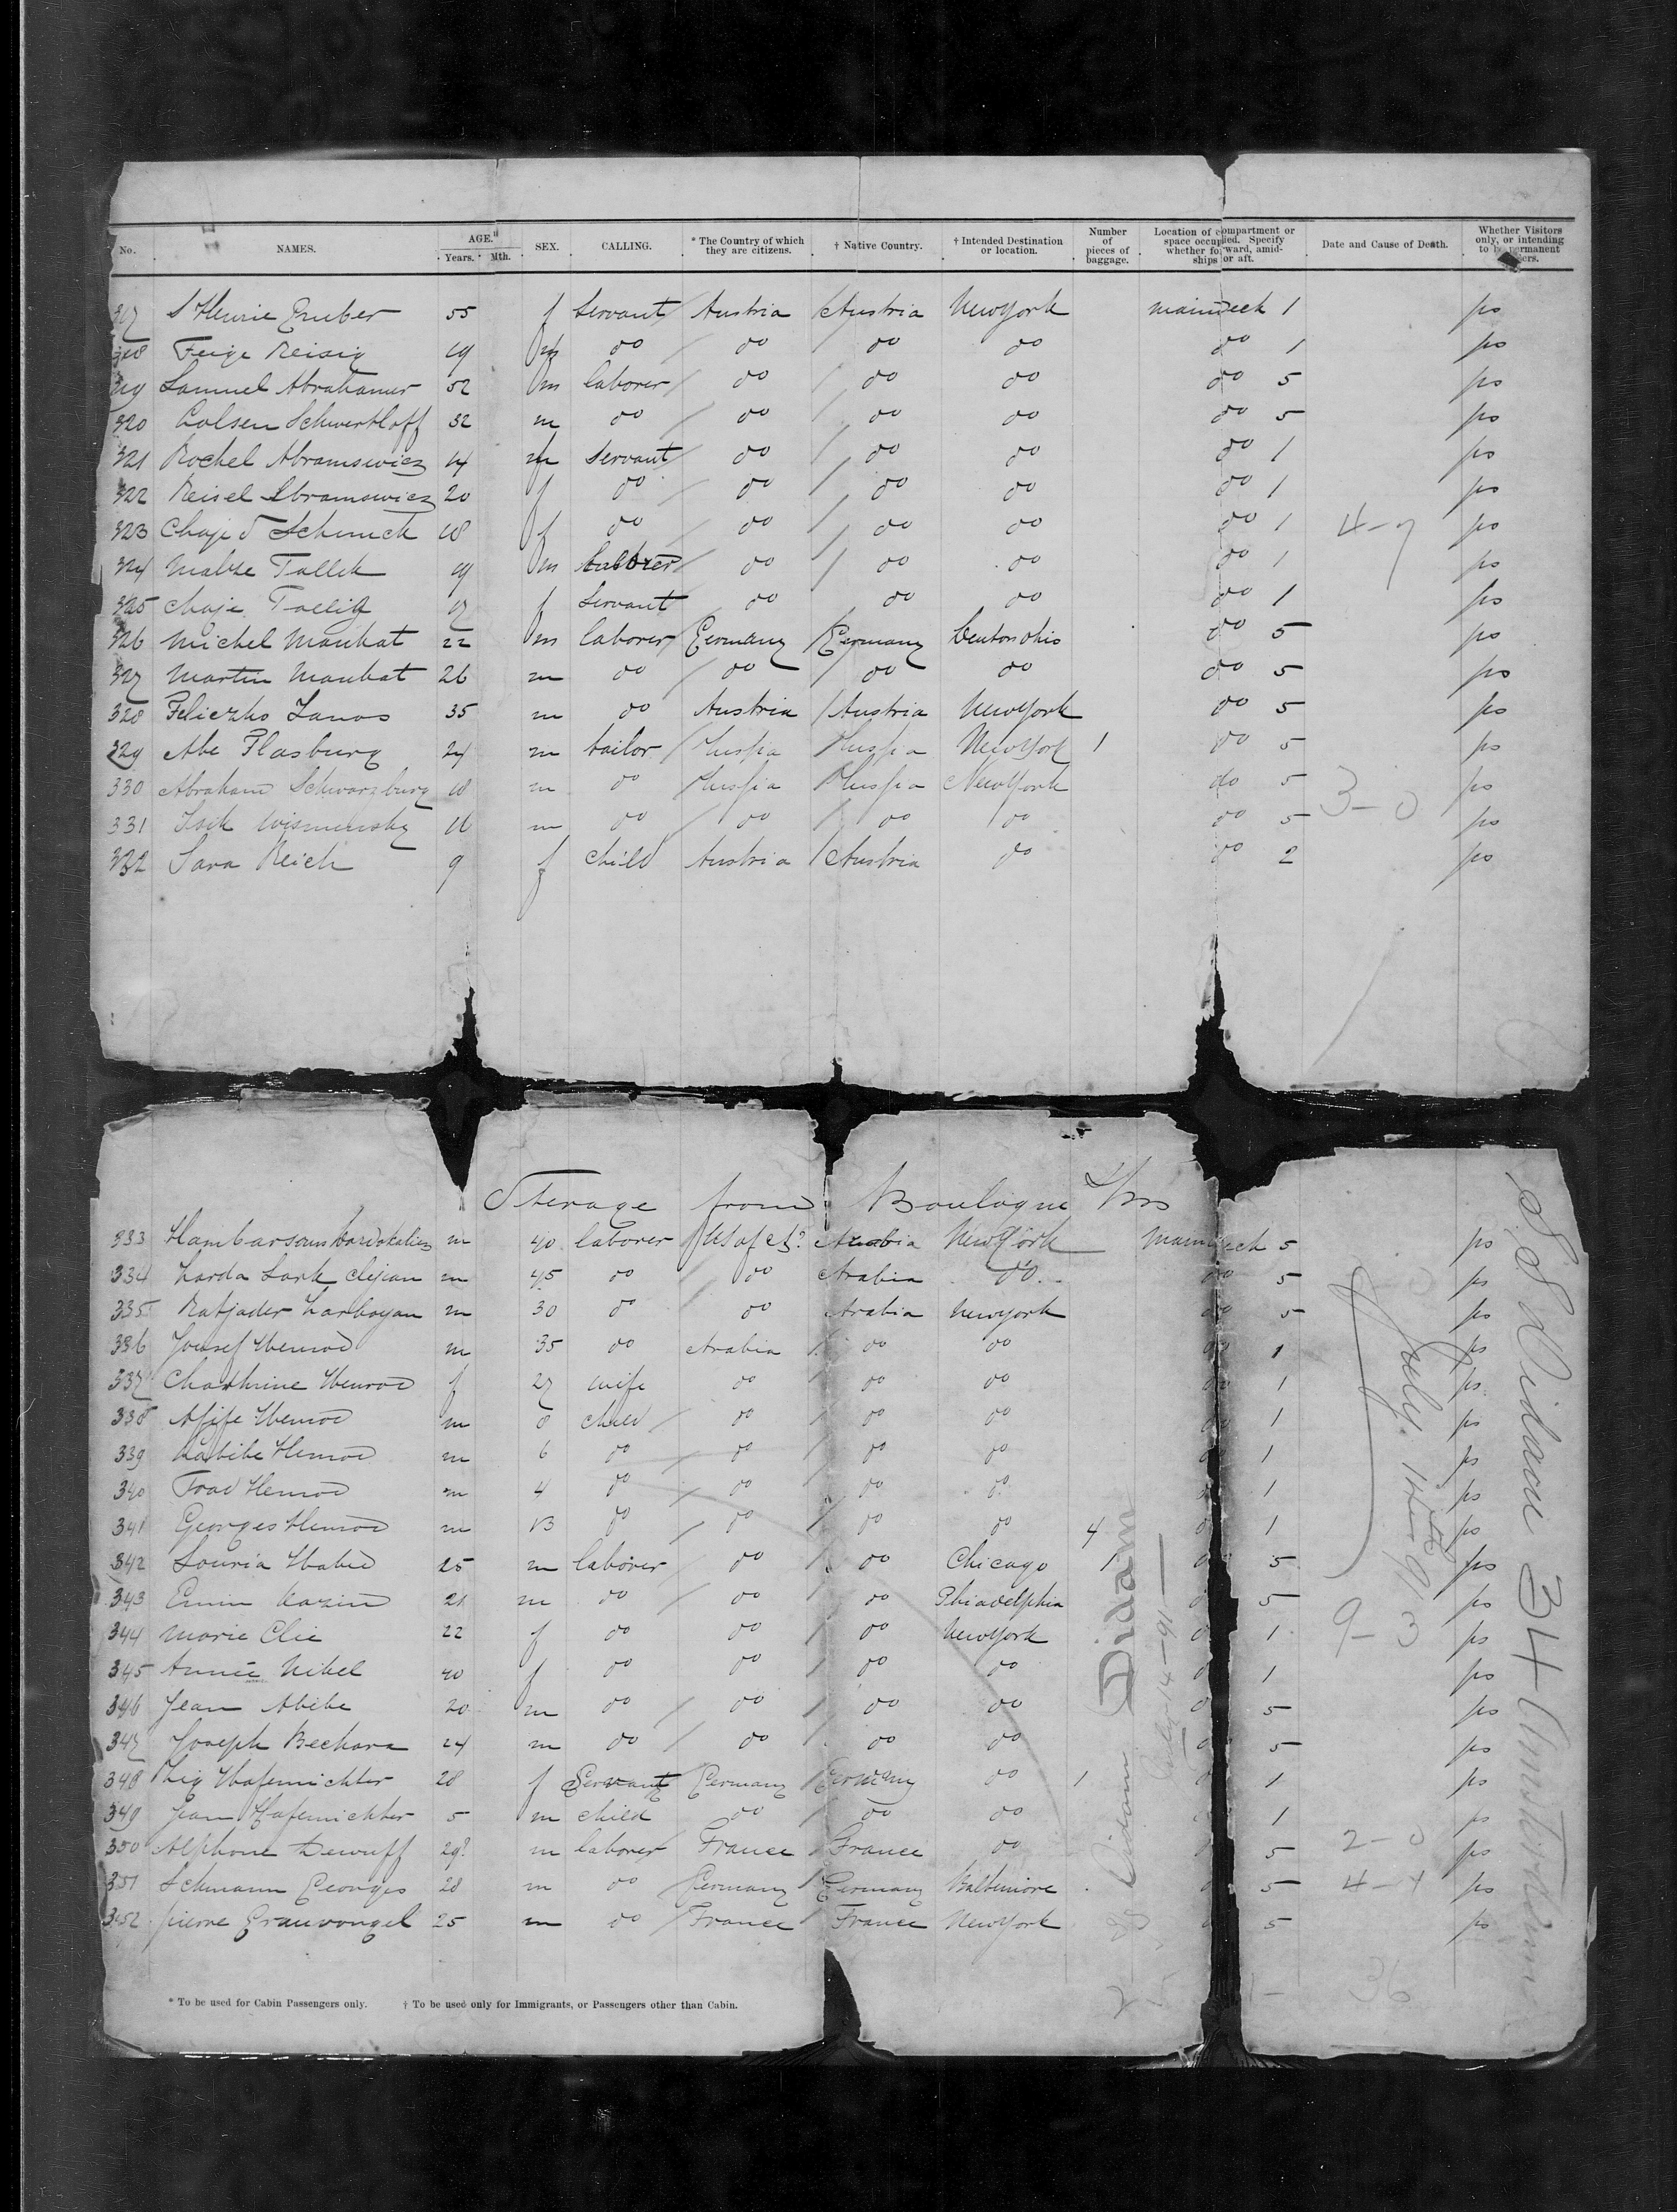 No. NAMES. AGE. Years. Mth. SEX. CALLING. * The Country of which they are citizens. † Native Country. † Intended Destination or location. Number of pieces of baggage. Location of compartment or space occupied. Specify whether forward, amidships or aft. Date and Cause of Death. Whether Visitors only, or intending to be permanent
317 Gruber 55 f Servant Austria Austria New York maindeck 1 ps
318 Feige Reisig 19 do do do do do 1 ps
319 Samuel Abrahamer 52 m laborer do do do do 5 ps
320 Schwertloff 32 m do do do do do 5 ps
321 Rochel Abramswicz 14 servant do do do do 1 ps
322 Reisel Abramswicz 20 f do do do do do 1 ps
323 Chaje Schmick 18 f do do do do do 1 ps
324 Malke Tallek 19 m laborer do do do do 1 ps
325 Chaje 17 f Servant do do do do 1 ps
326 Michel Maukat 22 m laborer Germany Germany do 5 ps
327 Martin Maukat 26 m do do do do do 5 ps
328 Feliczko Janos 35 m do Austria Austria New York do 5 ps
329 Abe Flasburg 24 m tailor Russia Russia New York 1 do 5 ps
330 Abraham Schwarzburg 18 m do Russia Russia New York do 5 ps
331 Isik Wismensky 16 m do do do do do 5 ps
332 Sara Reich 9 f child Austria Austria do do 2 ps
4-7
3-0
Sterage from Boulogne s/m
333 m 40 laborer New York maindeck 5 ps
334 m 45 do do Arabia do do 5 ps
335 m 30 do do Arabia New York do 5 ps
336 Yousef Hemod m 35 do Arabia do do do 1 ps
337 Chathrine Hemod f 27 wife do do do do 1 ps
338 Afife Hemod m 8 child do do do do 1 ps
339 Habibe Hemod m 6 do do do do 1 ps
340 Foad Hemod m 4 do do do do 1 ps
341 Georges Hemod m 13 do do do do 4 1 ps
342 Souria Habed 25 m laborer do do Chicago 1 5 ps
343 Emin Kazin 21 m do do do Phiadelphia 5 ps
344 Marie Elie 22 f do do do New York 1 ps
345 Annie Nikel 40 f do do do do 1 ps
346 Jean Abibe 20 m do do do do 5 ps
347 Joseph Bechara 24 m do do do do 5 ps
348 Hafenrichter 28 f Servant Germany Germany do 1 1 ps
349 Jean Hafenrichter 5 m child do do do 1 ps
350 Alphone Dewuff 29 m laborer France France do 5 ps
351 Schmann Georges 28 m do Germany Germany Baltimore 5 ps
352 pierre Grauvongel 25 m do France France New York 5 ps
9-3
2-0
4-4
36
S S Didam 34 Amsterdam
July 14th 91
Didam
July 14-91
* To be used for Cabin Passengers only. † To be used only for Immigrants, or Passengers other than Cabin.